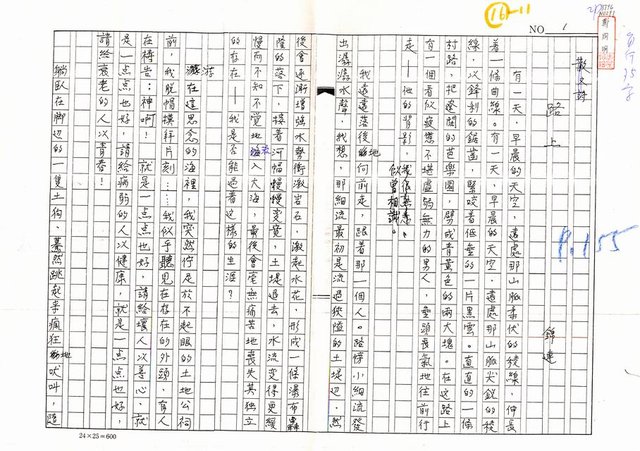 16-11
NO 1
散文詩
路上
錦連
P.155
有一天，早晨的天空，遠處那山脈柔伏的稜線，伸長
着一條曲線。有一天，早晨的天空，遠處那山脈尖銳的稜
線，以鋒利的鋸齒，緊咬着低垂的一片黑雲。直直的一條
村路，把遼闊的芭樂園，劈成青黃色的兩大塊。在這路上
有一個看似疲憊不堪虛弱無力的男人，垂頭喪氣地往前行
走—他的背影，我很熟悉。
似曾相識。
我遠遠落後地向前走，跟着那一個人。路傍小細流發
出潺潺水聲，我想，那細流最初是流過狹隘的土堤邊，然
後會逐漸增強水勢衝激岩石，激起水花，形成一條瀑布轟
隆的落下，接着河幅慢慢變寬，土堤退去，水流變得更緩
慢而不知不覺地流入大海，最後會毫無痛苦地喪失其獨立
的存在—我是否能過着這樣的生涯？
游在這思念的海裡，我突然佇足於不起眼的土地公祠
前，我脫帽横佇片刻……我似乎聽見在存在的外頭，有人
在禱告：神啊！就是一點點也好，請給壞人以善心，就
是一點點也好，請給病弱的人以健康，就是一點點也好，
請給衰老的人以青春！
躺臥在脚边的一隻土狗，驀然跳起來瘋狂地吠叫，這
24×25=600